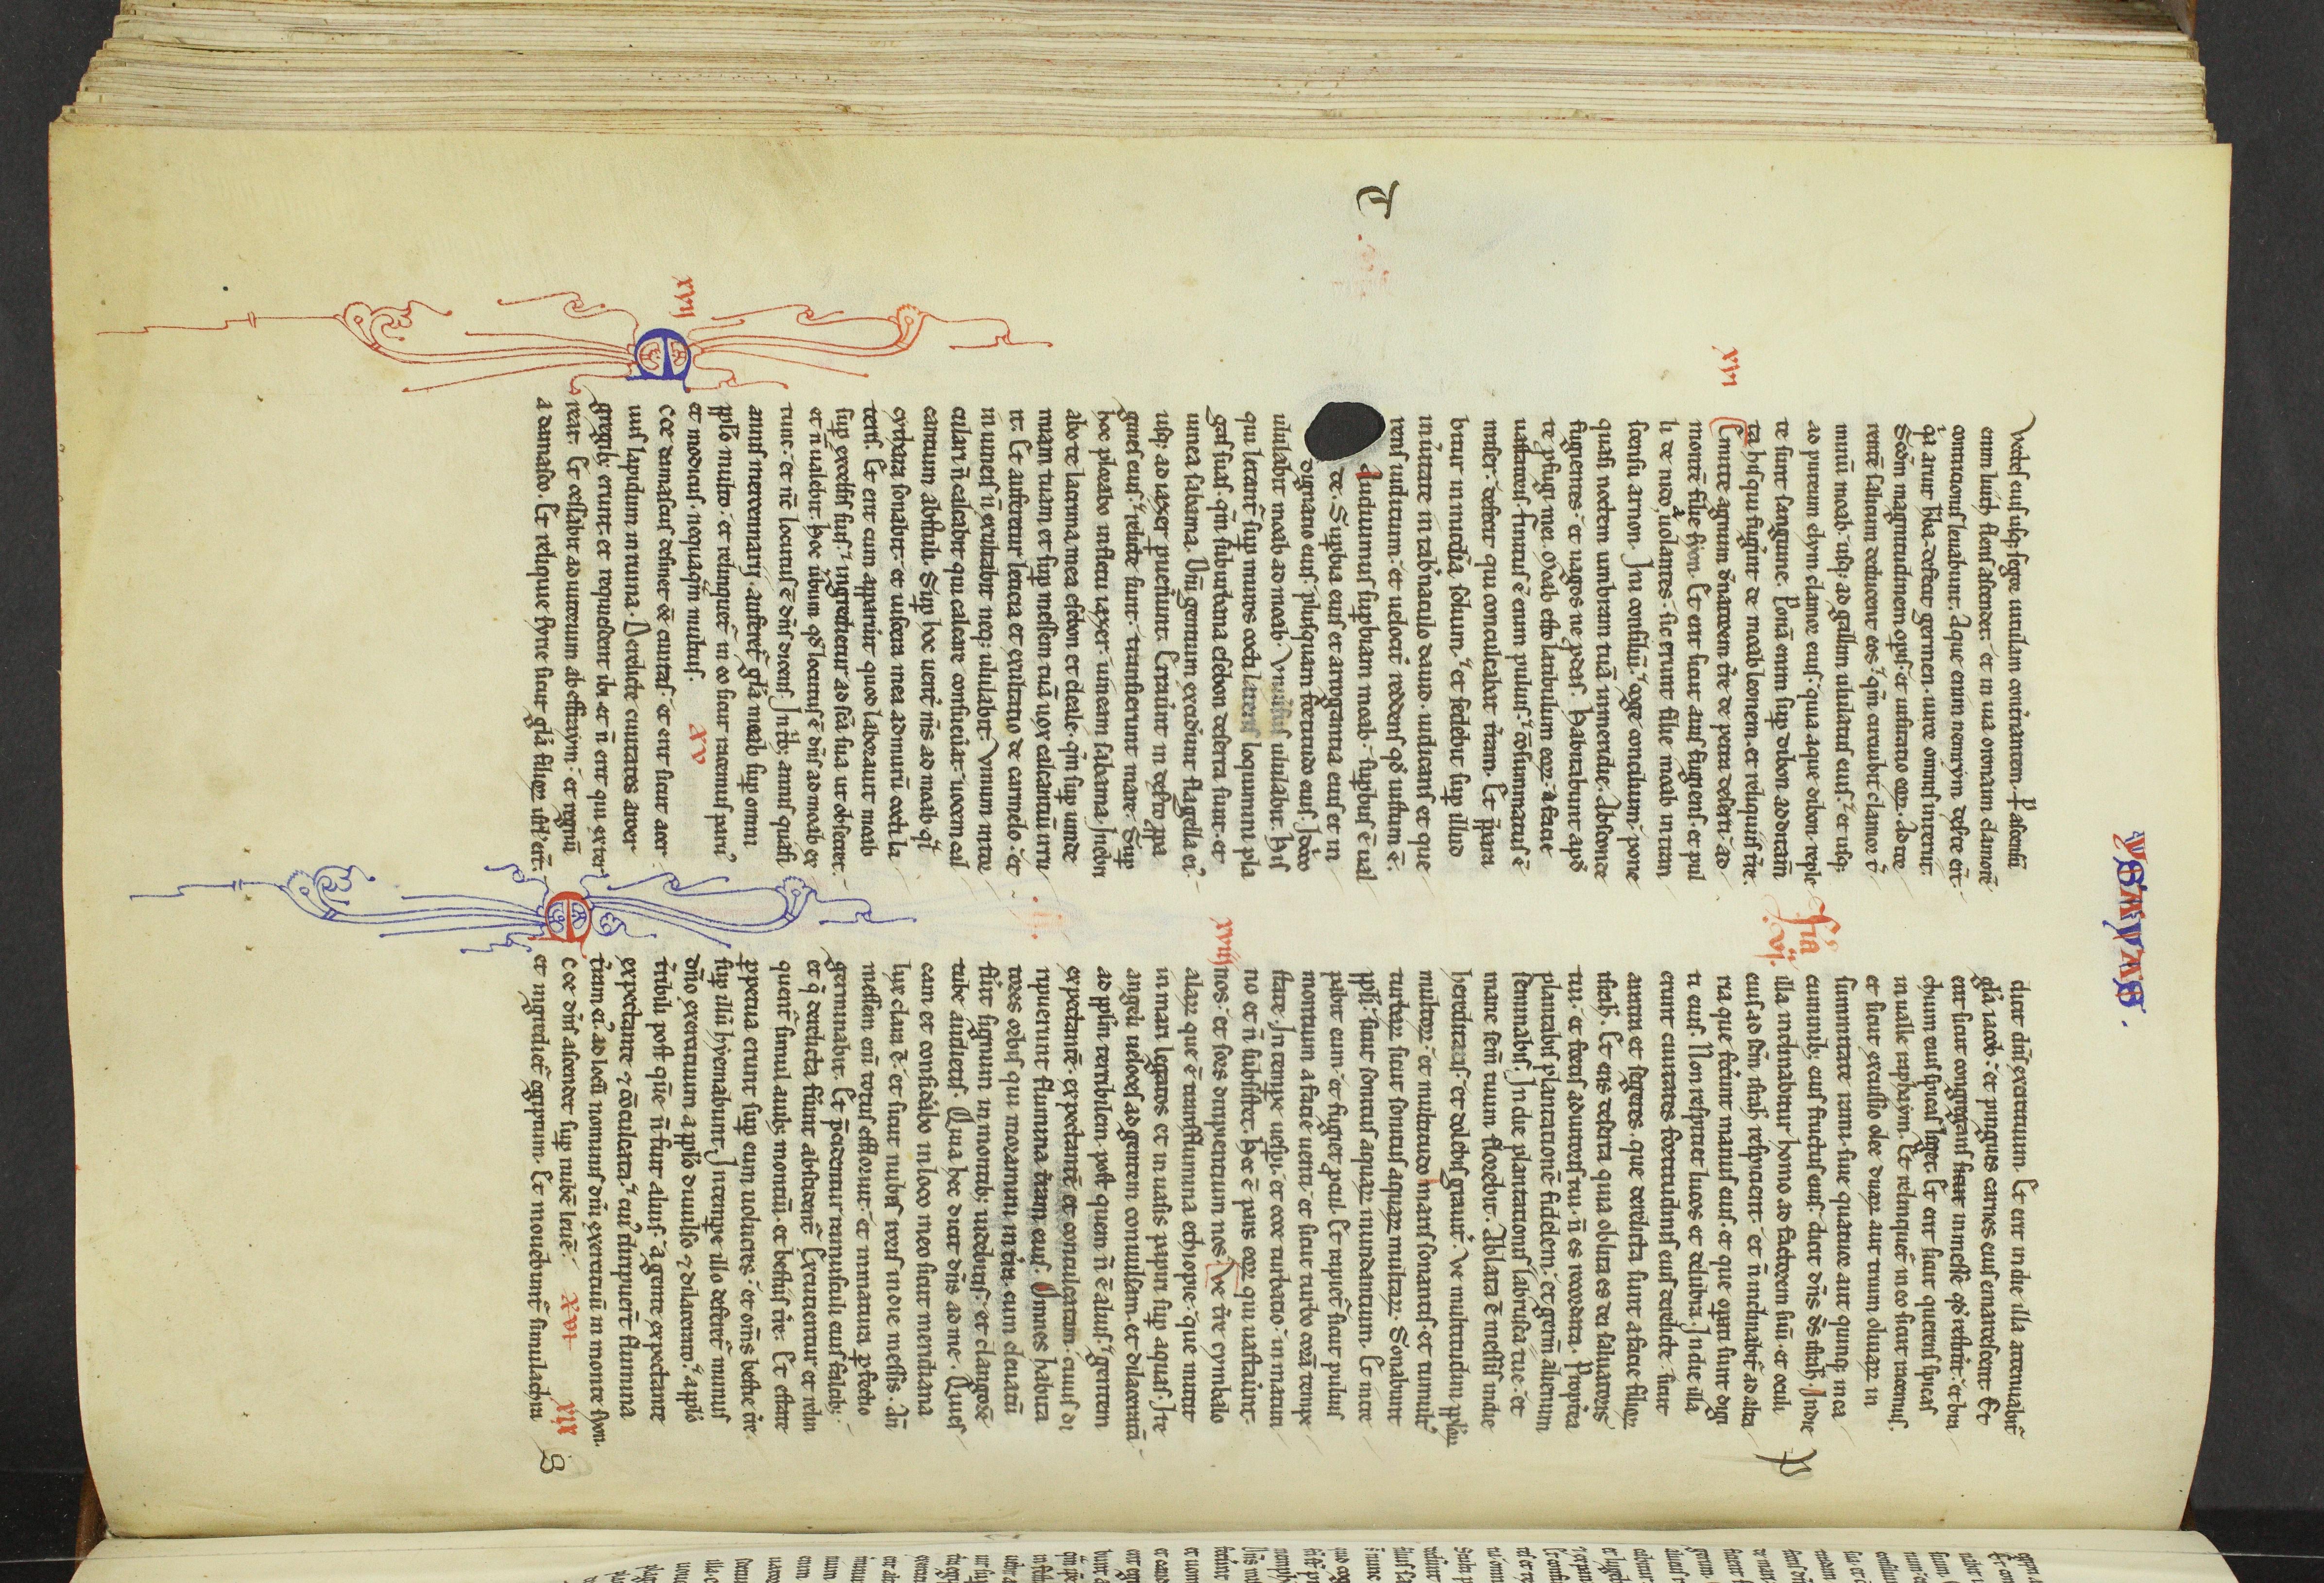 YSAYAS.
Vectes eiuſ uſq; ſegor uitulam cont̾nantem. P̱ aſcenſū
enim luith flenſ aſcendet. et in uia oronaim clamorē
contricioniſ leuabunt. Aque enim nemrym deſerte erūt
q̇a aruit h̾ba. defecit germen. uiror omniſ interiit.
Scd̄m magnitudinem op̲iſ. et uiſitatio eoꝝ. Ad tor
rentē ſalicum ducent eoſ. qm̄ circuibit clamor t̾
minū moab. uſq; ad gallim ululatuſ eiuſ. et uſq;
ad puteum elym clamor eiuſ. quia aque dibon reple
te ſunt ſanguine. Ponā enim ſup̲ dibon additam̄
ta hiſ qui fugiūt de moab leonem. et reliquiiſ tr̄e.
xvi
Emitte agnum dn̄atorem tr̄e de petra deſerti. ad
montē filie ſyon. Et erit ſicut auiſ fugienſ. et pul
li de nido uolanteſ. ſic erunt filie moab in tranſ
ſcenſu arnon. Ini conſiliū. coge concilium. pone
quaſi noctem umbram tuā in meridie. Abſconde
fugienteſ. et uagoſ ne p̲daſ. Habitabunt apđ
te p̲fugi mei. Moab eſto latibulum eoꝝ. a facie
uaſtatoriſ. Finituſ ē enim puluiſ. cōſummatuſ ē
miſer. defecit qui conculcabat t̾ram. Et p̄para
bitur in mi̅a ſolium. et ſedebit ſup̲ illud
in u̾itate in tab̾naculo dauid. iudicanſ et que
renſ iudicium. et uelocit̾ reddenſ qđ iuſtum ē.
Audiuimuſ ſup̲biam moab. ſup̲buſ ē ual
de. Sup̲bia eiuſ et arrogantia eiuſ et in
dignatio eiuſ. pluſquam fortitudo eiuſ. Idcirco
ululabit moab ad moab. Vniu̾ſuſ ululabit. Hiſ
qui letant̾ ſup̲ muroſ cocti lateriſ loquimini pla
gaſ ſuaſ. qm̄ ſuburbana eſebon deſerta ſunt. et
uinea ſabama. Dn̄i gentium exciderunt flagella ei᷒
uſq; ad iazer p̲uenerunt. Errauerunt in deſerto. p̲pa
gineſ eiuſ relicte ſunt. tranſierunt mare. Sup̲
hoc plorabo in fletu iazer. uineam ſabama. Inebri
abo te lacrima mea eſebon et eleale. qm̄ ſup̲ uinde
miam tuam et ſup̲ meſſem tuā uox calcantiū irru
it. Et auferetur leticia et exultatio de carmelo. et
in uineiſ n̄ exultabit neq; iubilabit. Vinum in tor
culari n̄ calcabit qui calcare conſueuerat. uocem cal
cantium abſtuli. Sup̲ hoc uent̾ m̄s ad moab qſi
cythara ſonabit. et uiſcera mea ad murū cocti la
teriſ. Et erit cum apparuerit quod laborauit moab
ſup̲ excelſiſ ſuiſ. ingredietur ad ſcā ſua ut obſecret.
et n̄ ualebit. Hoc u̾bum qđ locutuſ ē dn̄s ad moab ex
tunc. et nc̄ locutuſ ē dn̄s dicenſ. In trib; anniſ quaſi
anni mercennarii. auferet̾ gl̄a moab ſup̲ omni
pp̄lo multo. et relinquet̾ in eo ſicut racemuſ paru᷒
et modicuſ. nequaq̄m multuſ. xv
xvii
Ecce damaſcuſ deſinet eē ciuitaſ. et erit ſicut acer
uuſ lapidum in ruina. Derelicte ciuitateſ aroer
gregib; erunt. et requieſcent ibi. et n̄ erit qui exter
reat. Et ceſſabit adiutorium ab effraym. et regnū
a damaſco. Et reliquie ſyrie ſicut gl̄a filioꝝ iſrl̄ erūt.
dicit dn̄s exercituum. Et erit in die illa attenuabit̾
gl̄a iacob. et pingueſ carneſ eiuſ emarceſcent. Et
erit ſicut congreganſ in meſſe qđ reſtit̾it. et bra
chium eiuſ ſpicaſ leget. Et erit ſicut querenſ ſpicaſ
in ualle raphaym. Et relinquet̾ in eo ſicut racemuſ.
et ſicut excuſſio olee duaꝝ aut trium oliuaꝝ in
ſummitate rami. ſiue quatuor aut quinq; in ca
cuminib; eiuſ fructuſ eiuſ. dicit dn̄s d̄s iſrahl. In die
illa inclinabitur homo ad factorem ſuū. et oculi
eiuſ ad ſcm̄ iſrahl reſpicient. et n̄ inclinabit̾ ad alta
ria que fecerunt manuſ eiuſ. et que op̲ati ſunt digi
ti eiuſ. Non reſpiciet lucoſ et delubra. In die illa
erunt ciuitateſ fortitudiniſ eiuſ derelicte. ſicut
aratra et ſegeteſ. que derelicta ſunt a facie filioꝝ
iſrahl. Et eriſ deſerta quia oblita eſ dei ſaluatoriſ
tui. et fortiſ adiutoriſ tui. n̄ eſ recordata. Propterea
plantabiſ plantationē fidelem. et germ̄ alienum
ſeminabiſ. In die plantationiſ labruſca tue. et
mane ſem̄ tuum florebit. Ablata ē meſſiſ in die
hereditatiſ. et dolebiſ grauit̾. Ve multitudini pplo̅ꝝ
multoꝝ. ut multitudo mariſ ſonantiſ. et tumult᷒
turbaꝝ ſicut ſonituſ aquaꝝ multaꝝ. Sonabunt
pp̄li. ſicut ſonituſ aquaꝝ inundantium. Et incre
pabit eum. et fugiet p̲cul. Et rapiet̾ ſicut puluiſ
montium a facie uenti. et ſicut turbo corā tempe
ſtate. In tempore ueſp̲i. et ecce turbatio. in matuti
no et n̄ ſubſiſtet. Hec ē parſ eoꝝ qui uaſtauerunt
nos. et ſorſ diripientium nos.
xviii
Ve tr̄e cymbalo
alaꝝ que ē tranſ flumina ethyopie. que mittit
in mari legatoſ et in uaſiſ papiri ſup̲ aquaſ. Ite
angeli ueloceſ ad gentem conuulſam. et dilaceratā.
ad pp̄lm terribilem. poſt quem n̄ ē aliuſ. gentem
expectantē. expectantē et conculcatam. cuiuſ di
ripuerunt flumina t̾ram eiuſ. Omneſ habita
toreſ orbiſ qui moramini in t̾ra. cum eleuatū
fuerit ſignum in montib; uidebitiſ. et clangorē
tube audietiſ. Quia hec dicit dn̄s ad me. Quieſ
cam et conſiderabo in loco meo ſicut meridiana
lux clara ē. et ſicut nubiſ roriſ in die meſſiſ. An̄
meſſem eni̅ totuſ effloruit. et inmatura p̲fectio
germinabit. Et p̄cidentur ramuſculi eiuſ falcib;.
et q̄ derelicta fuerint abſcident̾. Excutientur et relin
quent̾ ſimul auib; montiū. et beſtiiſ tr̄e. Et eſtate
p̲petua erunt ſup̲ eum uolucreſ. et om̄s beſtie tr̄e.
ſup̲ illū hyemabunt. In tempore illo deferet̾ munuſ
dn̄o exercituum a pp̄lo diuulſo ⁊ dilacerato. a pp̄lo
t̾ribili. poſt quē n̄ fuit aliuſ. a gente expectante
expectante ⁊ cōculcata. cui᷒ diripuer̄t flumina
t̾ram ei᷒. ad locū nominiſ dn̄i exercituū in monte ſyon.
xix
Ecce dn̄s aſcendet ſup̲ nubē leuē. xvi
et ingrediet̾ egyptum. Et mouebunt̾ ſimulachra